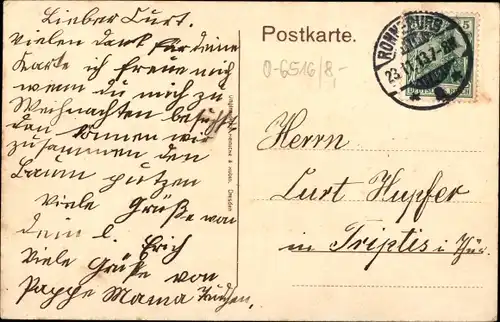 Lieber Curt.
Vielen Dank für deine
Karte ich freue mich
wenn du mich zu
Weihnachten besuchst
dan können wir
zusammen den
Baum putzen
Viele Grüße von
dein l. Erich
Viele Grüße von
Pappe Mama
Postkarte.
0-6516/8,-
RONNEBURG
23.11.13.7-8N
5
Herrn
Curt Hupfer
in Triptis i Thür.
Dresden